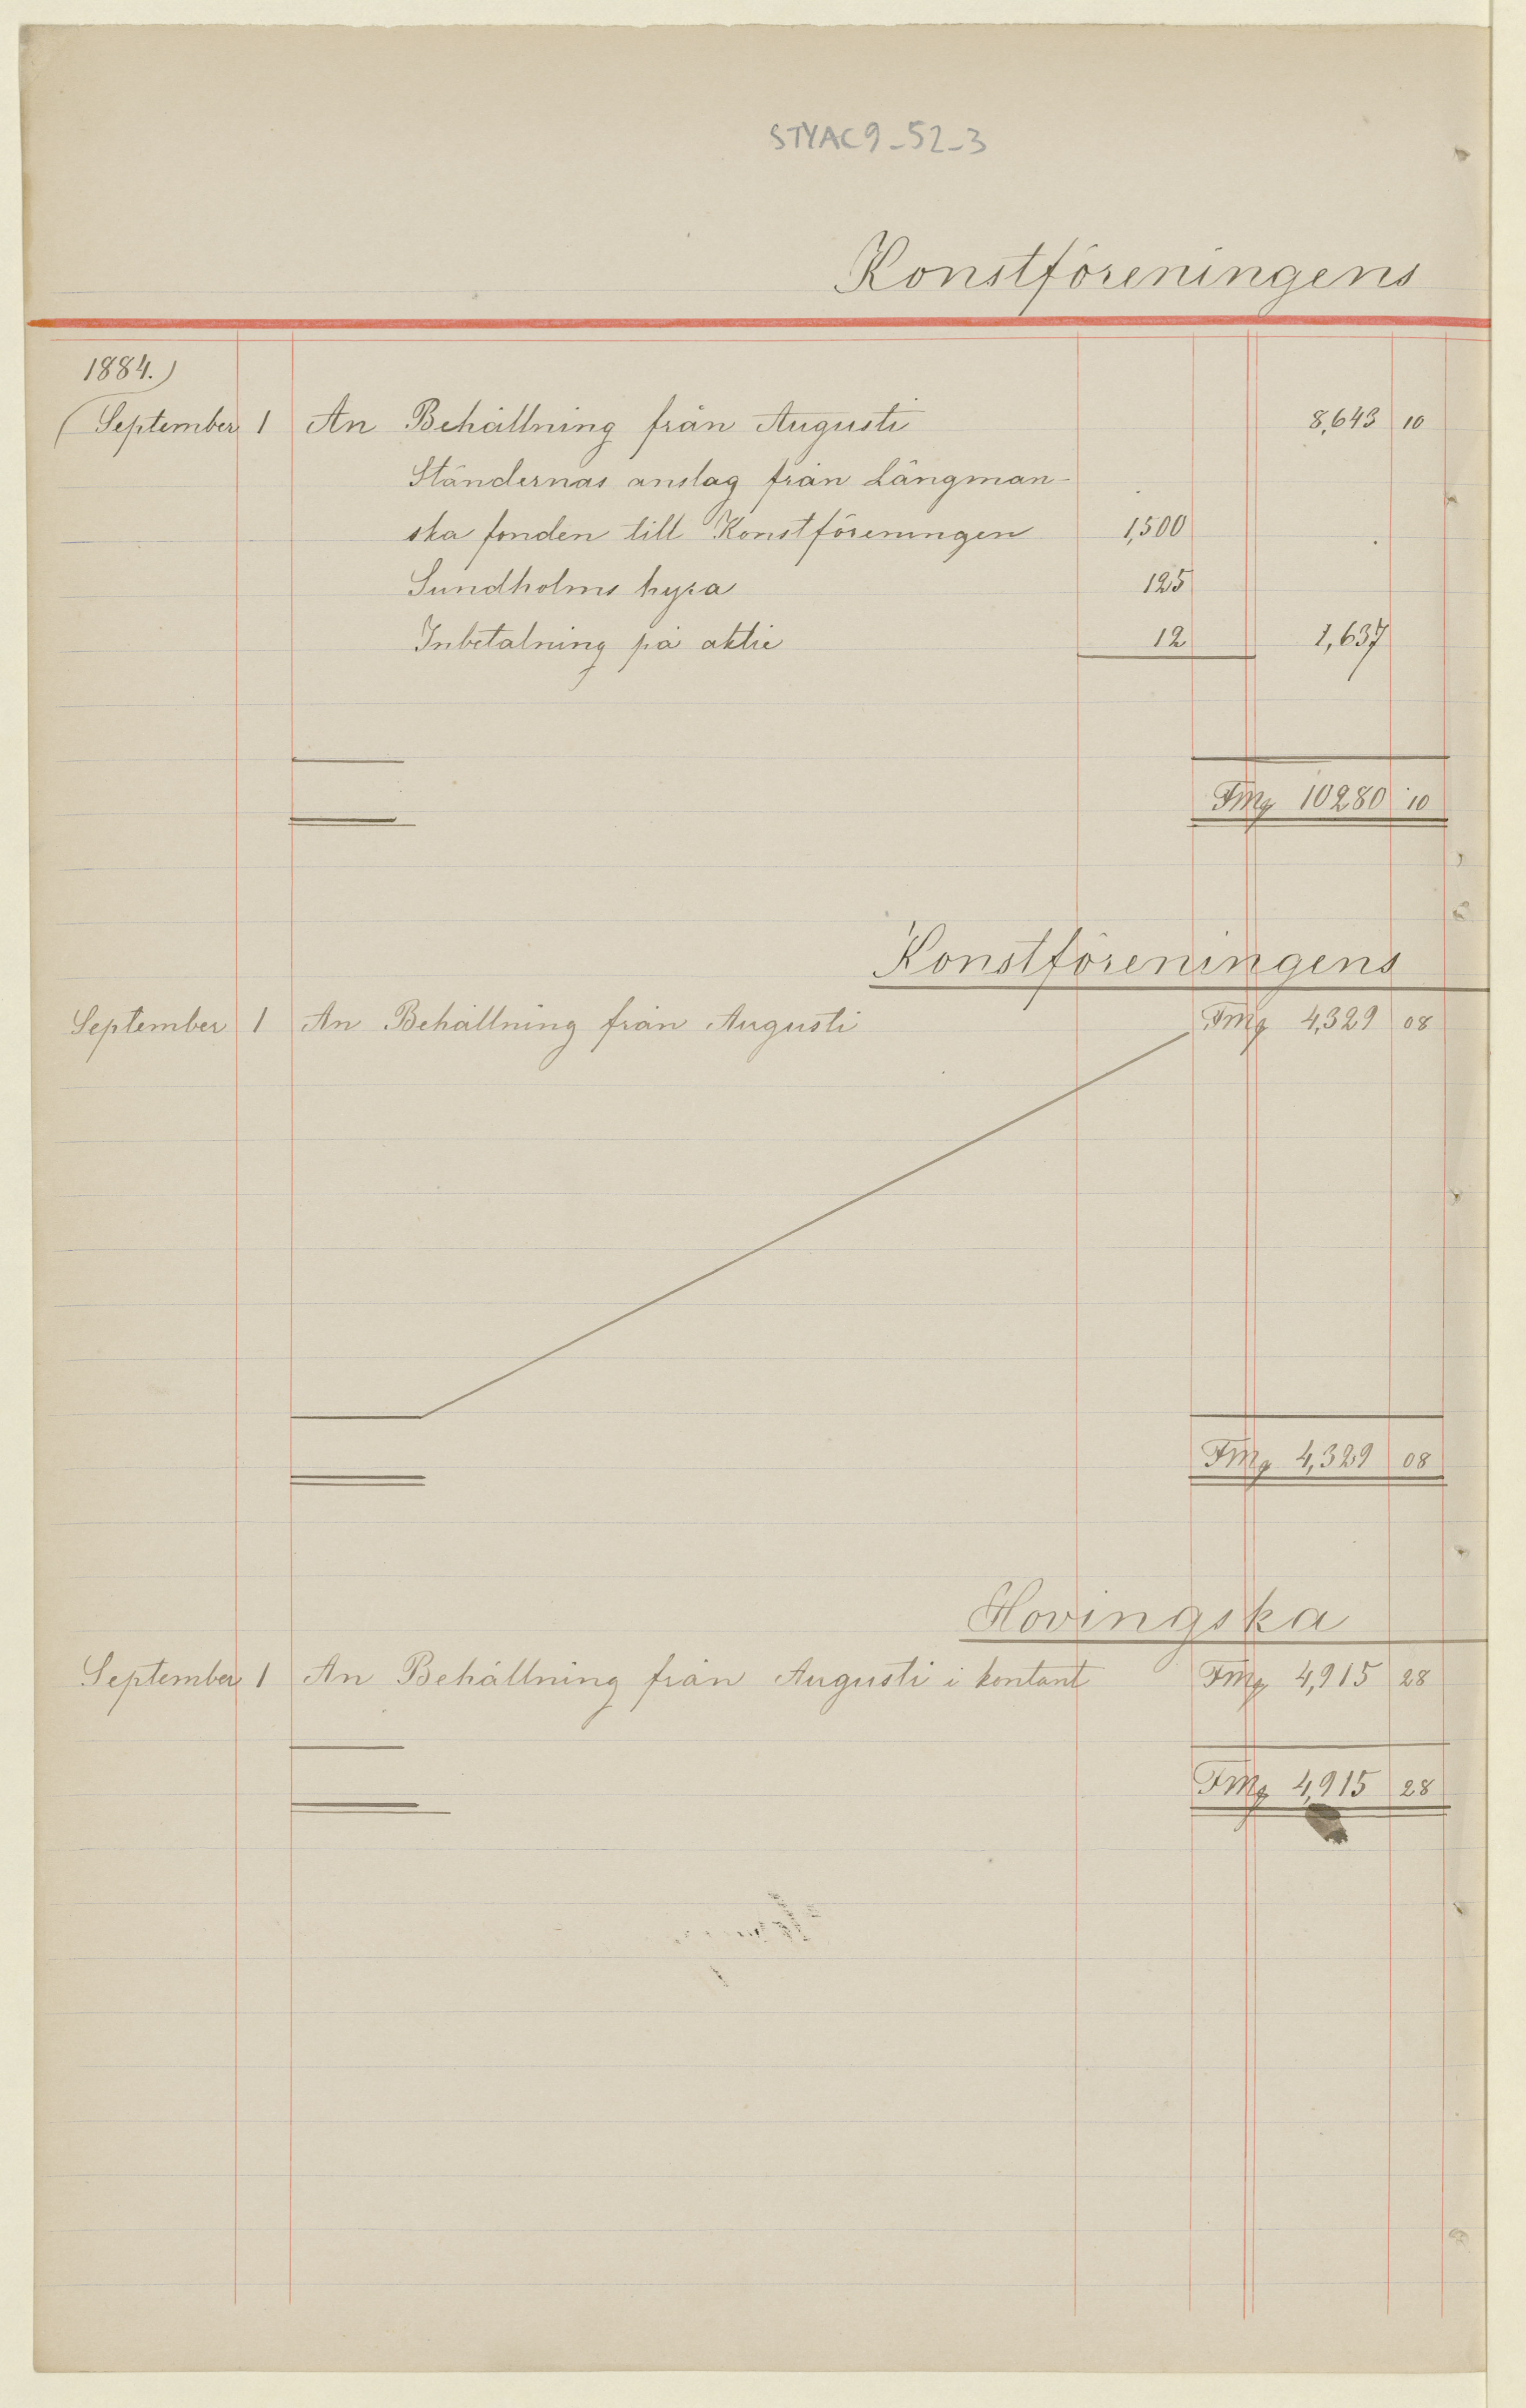 STYAC9-52-3
Konstföreningens
1884.)
September 1 An Behållning från Augusti 8,643 10
Ständernas anslag från Längman-
ska fonden till Konstföreningen 1,500
Sundholms hyra 125
Inbetalning på aktie 12 1,637
Fmg 10280 10
Konstföreningens
September 1 An Behållning från Augusti Fmg 4,329 08
Fmg 4,329 08
Hovingska
September 1 An Behållning från Augusti i kontant Fmg 4,915 28
Fmg 4,915 28